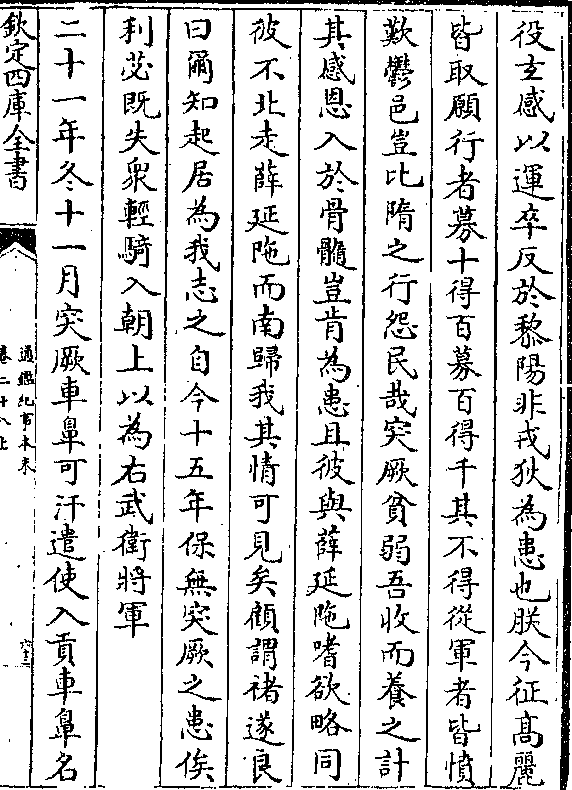 役玄感以運卒反於黎陽非戎狄為患也朕今征髙麗
皆取願行者募十得百募百得千其不得從軍者皆憤
歎鬱邑豈比隋之行怨民哉突厥貧弱吾收而養之計
其感恩入於骨髓豈肯為患且彼與薛延陁嗜欲略同
彼不北走薛延陁而南歸我其情可見矣顧謂禇遂良
曰爾知起居為我志之自今十五年保無突厥之患俟
利苾既失衆輕騎入朝上以為右武衛將軍
二十一年冬十一月突厥車鼻可汗遣使入貢車鼻名
欽定四庫全書
通鑑紀事本末
卷二十八上